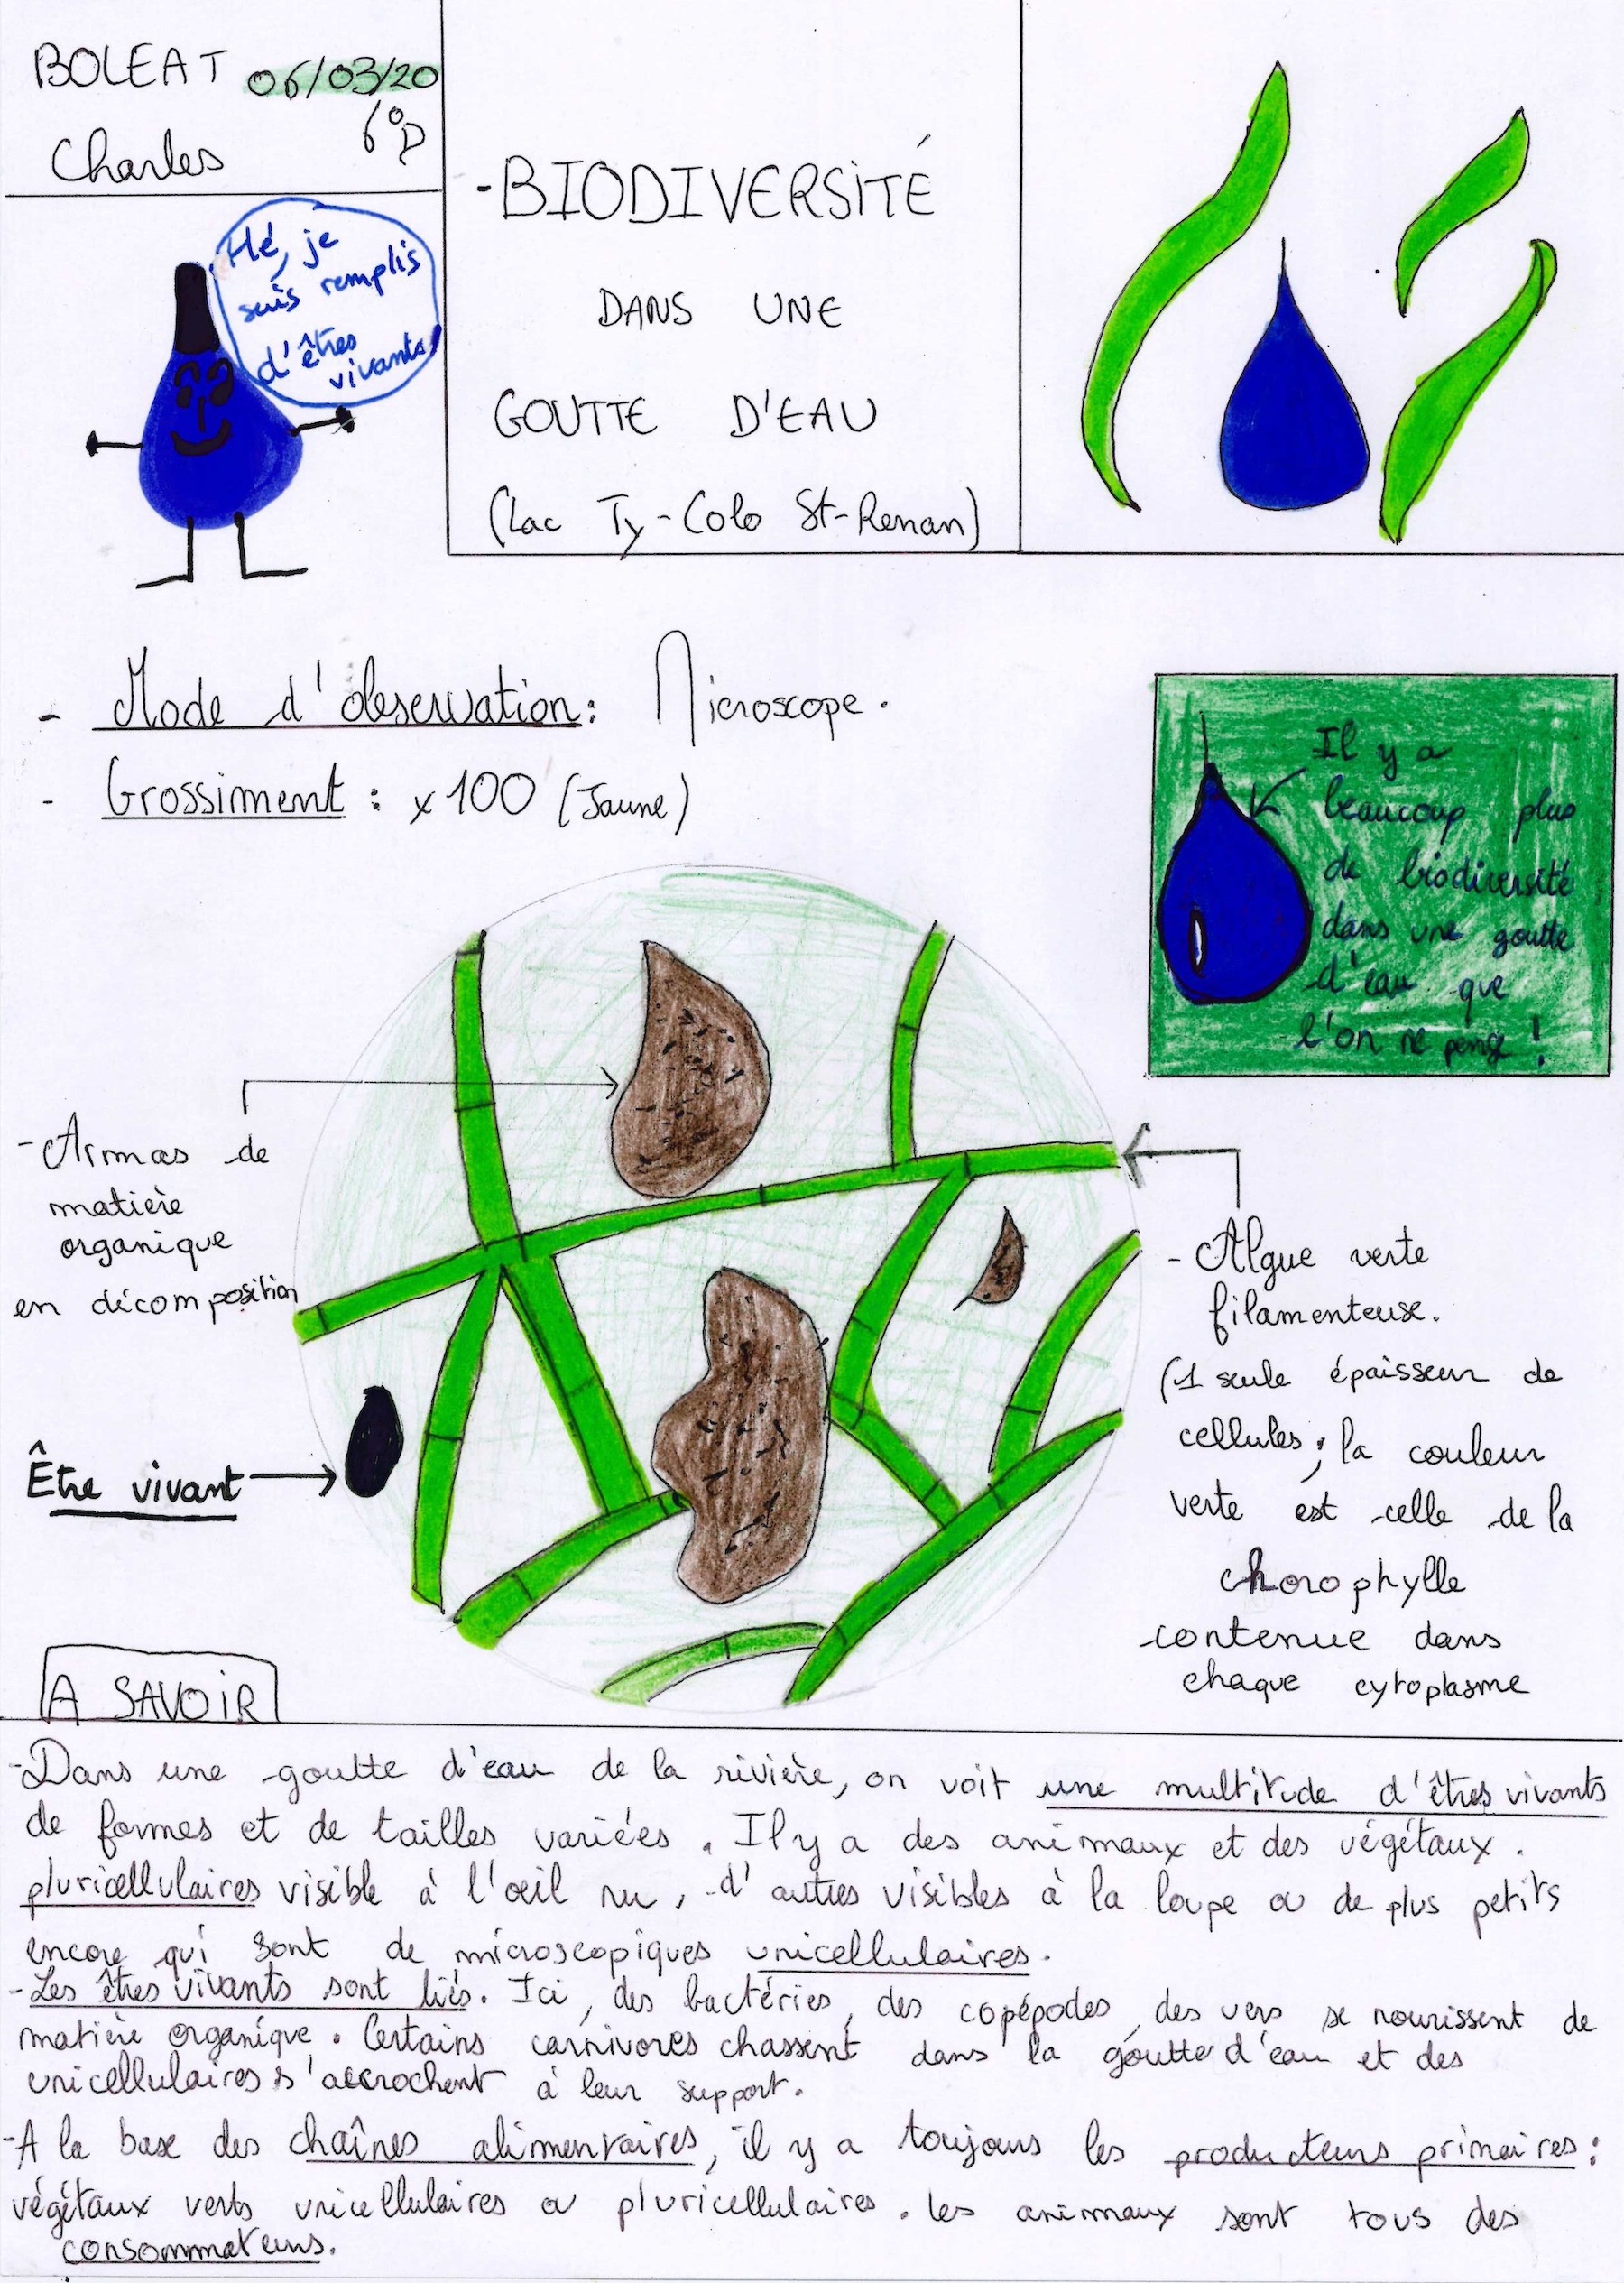 BOLEAT 06/03/20
Charles 6°D
Hé, je
suis remplis
d'êtres
vivants
-BIODIVERSITÉ
DANS UNE
GOUTTE D'EAU
(Lac Ty-Colo St-Renan)
- Mode d'observation: Microscope.
- Grossiment : x100 (Jaune)
Il y a
beaucoup plus
de biodiversité
dans une goutte
d'eau que
l'on ne pense !
- Armas de
matière
organique
en décomposition
Être vivant
- Algue verte
filamenteuse.
(1 seule épaisseur de
cellules ; la couleur
verte est celle de la
chorophylle
contenue dans
chaque cytoplasme
A SAVOIR
-Dans une goutte d'eau de la rivière, on voit une multitude d'êtres vivants
de formes et de tailles variées. Il y a des animaux et des végétaux.
pluricellulaires visible à l'œil nu, d'autres visibles à la loupe ou de plus petits
encore qui sont de microscopiques unicellulaires.
-Les êtres vivants sont liés. Ici, des bactéries, des copépodes, des vers se nourissent de
matière organique. Certains carnivores chassent dans la goutte d'eau et des
unicellulaires s'accrochent à leur support.
-A la base des chaînes alimentaires, il y a toujours les producteurs primaires :
végétaux verts unicellulaires ou pluricellulaires. les animaux sont tous des
consommateurs.